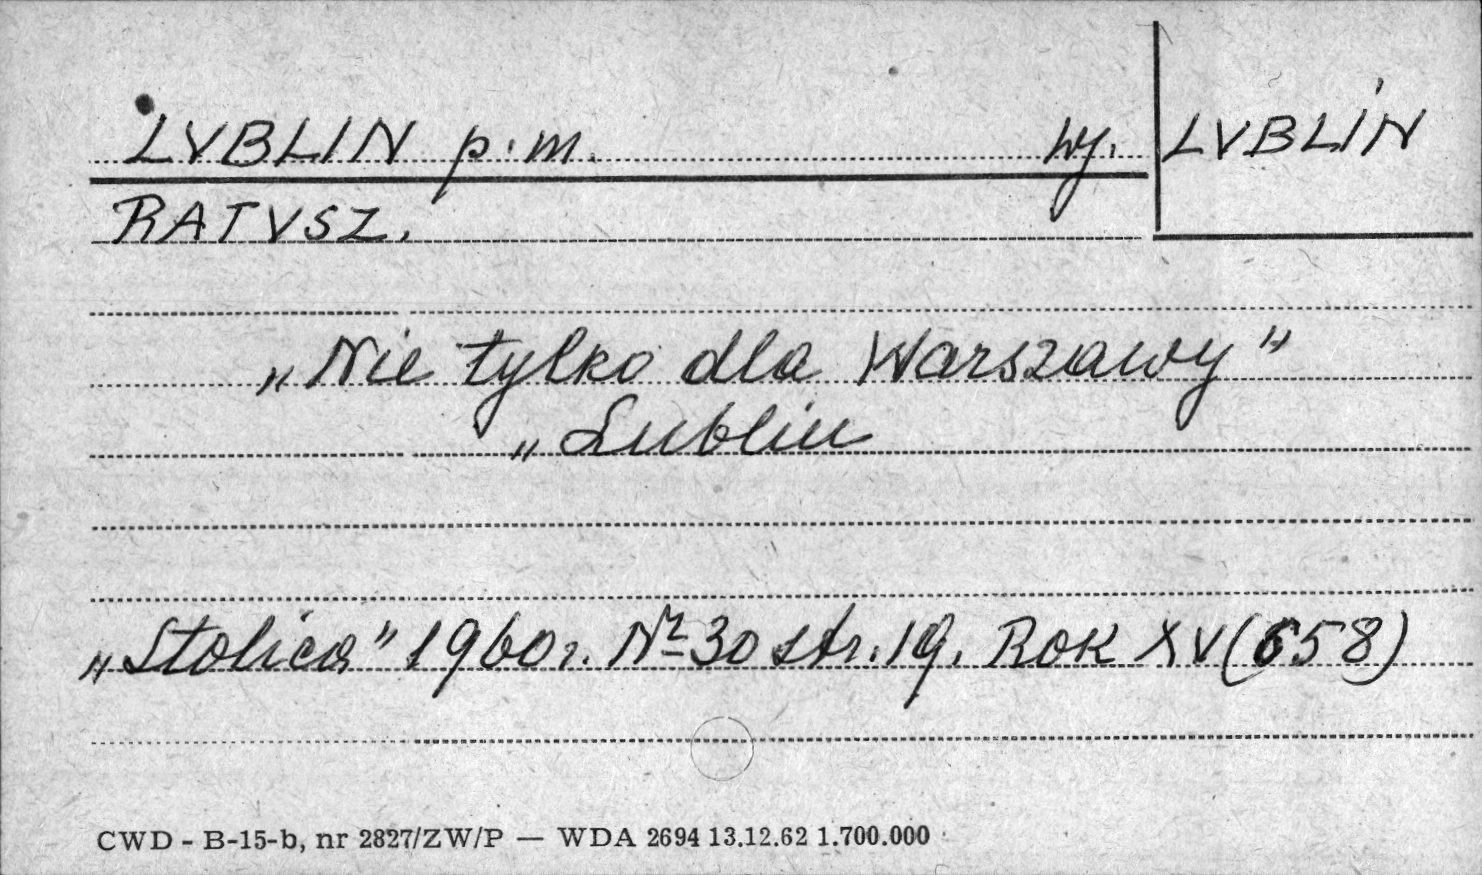 LVBLIN p.m. wj. LVBLIN
RATVSZ.
„Nie tylko dla Warszawy"
„Lublin
„Stolica" 1960r. Nr 30 str. 19. Rok XV (658)
CWD - B-15-b, nr 2827/ZW/P — WDA 2694 13.12.62 1.700.000